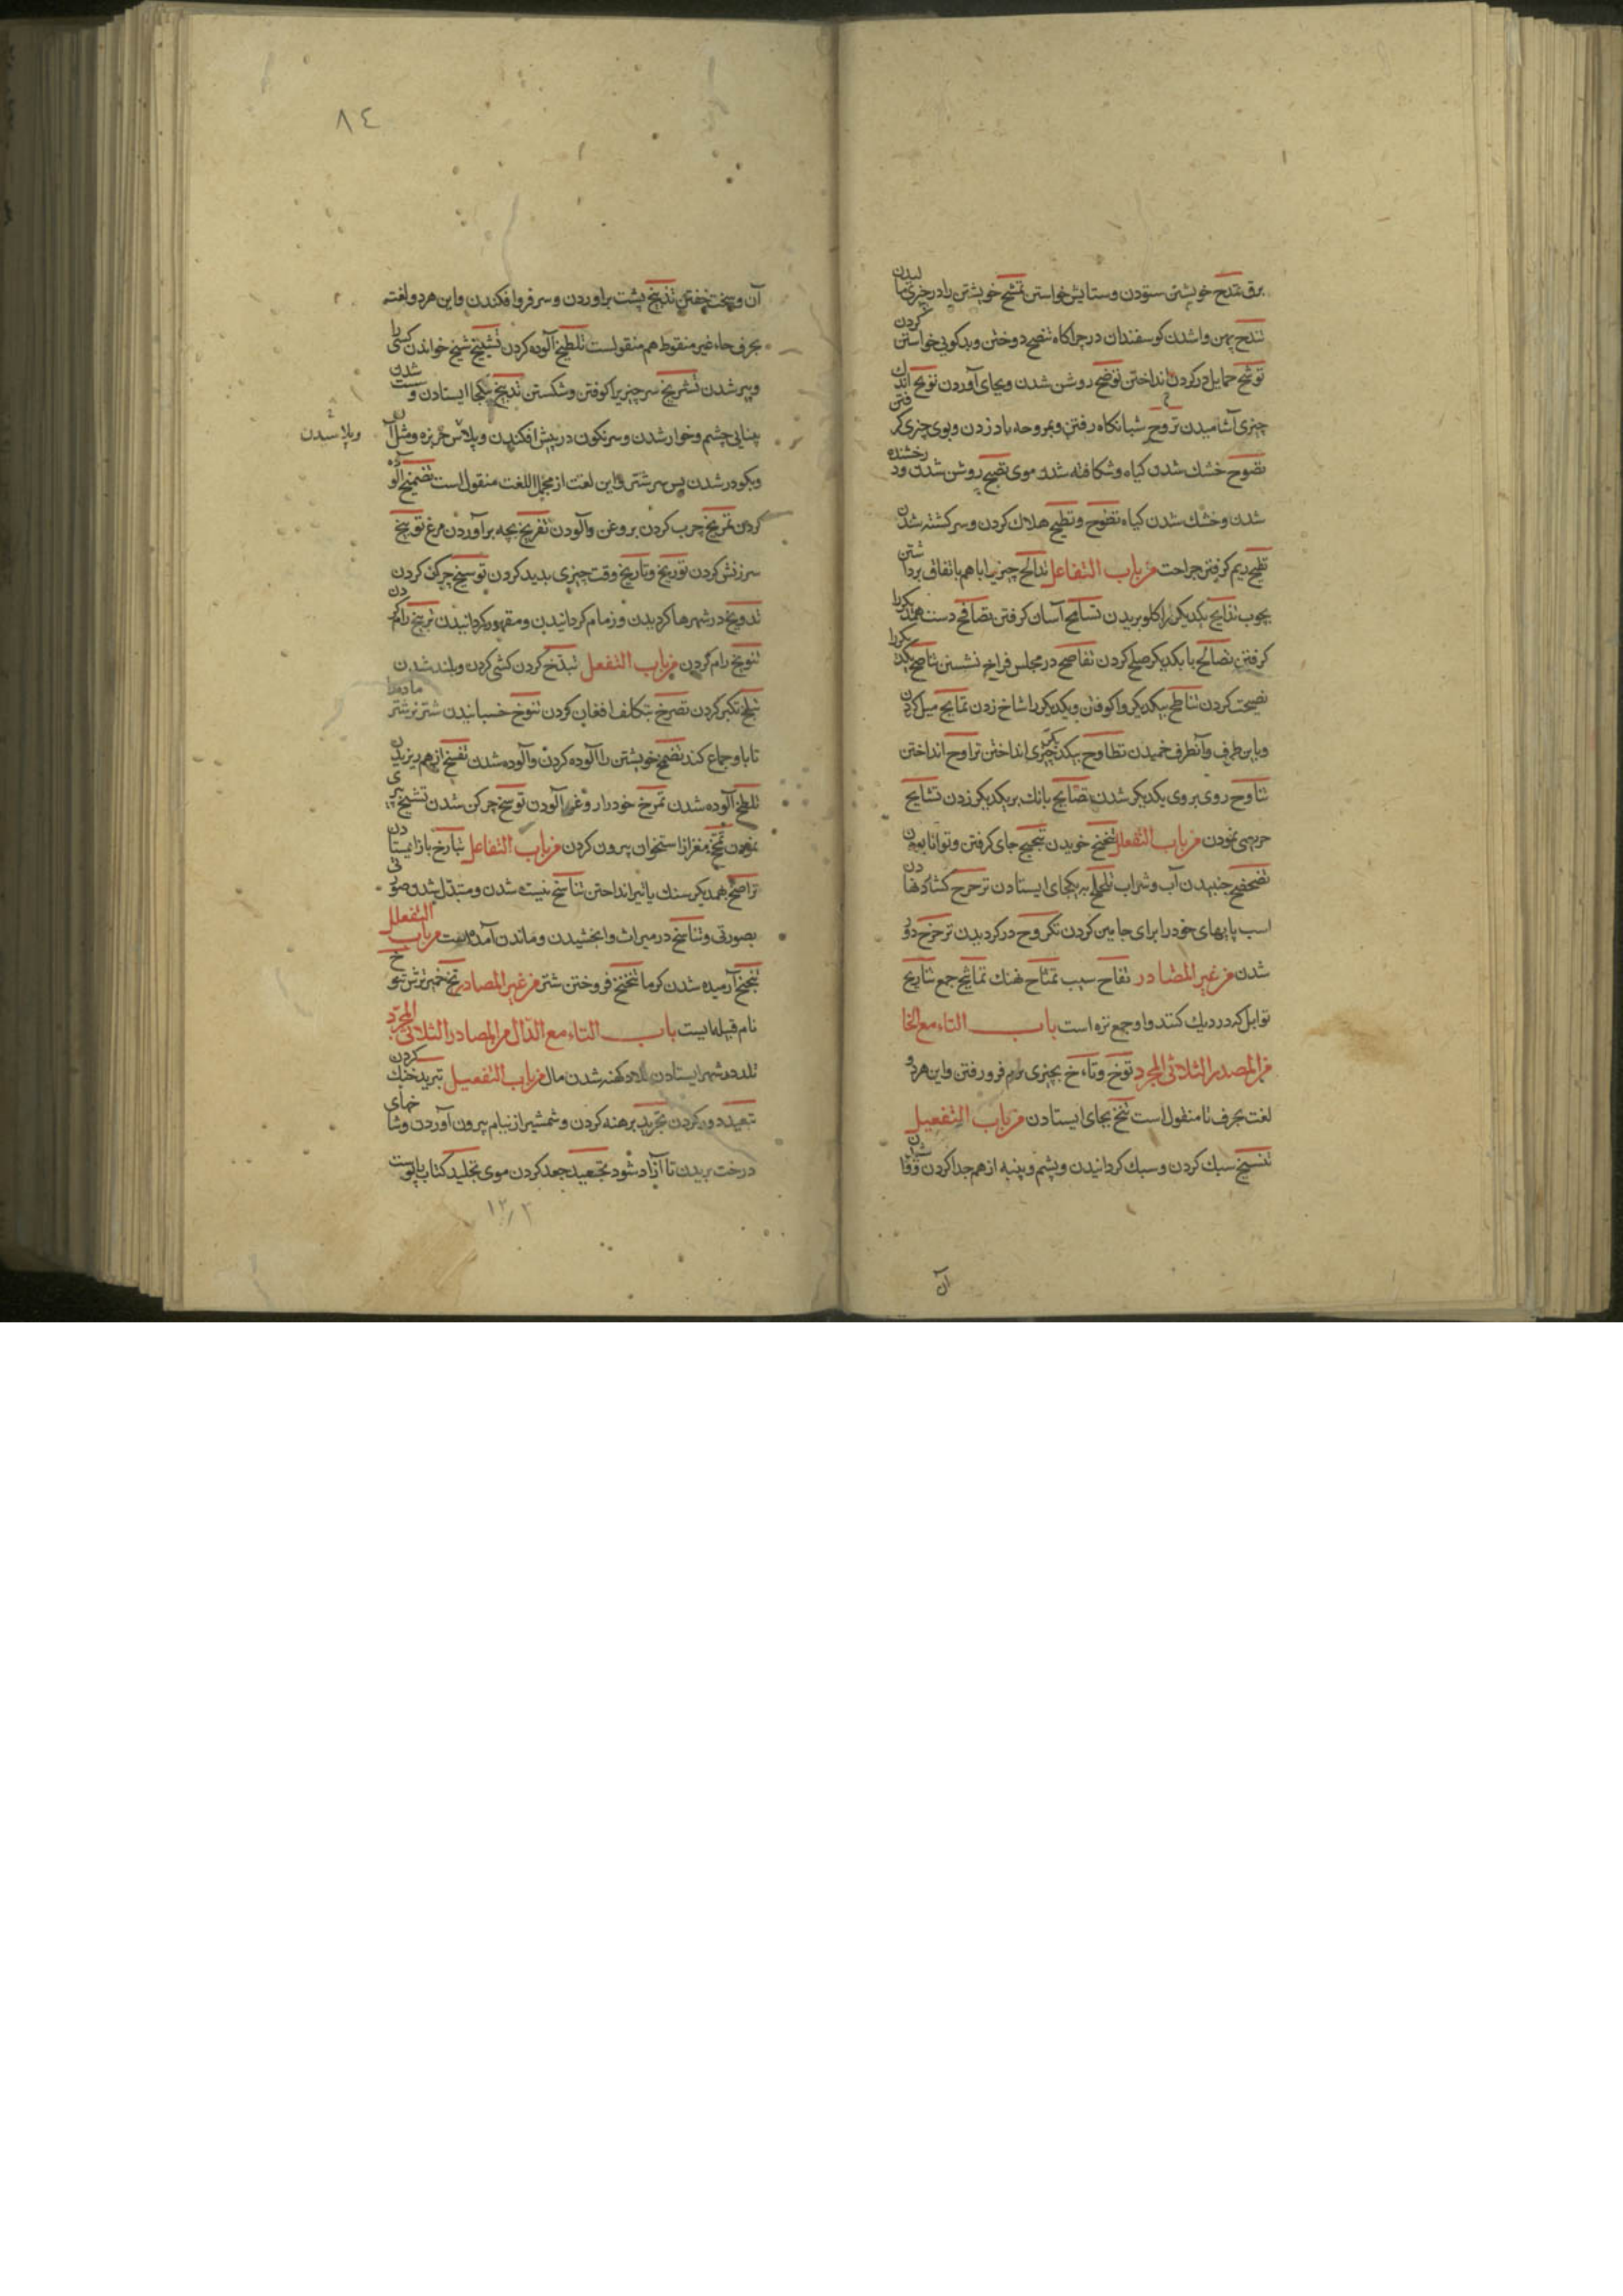 برق تمدح خویشتن ستودن و ستایش خواستن تمسح خویشتن را در چیزی مالیدن
تندح پهن واشدن کوسفندان در چراکاه تنصح دوختن و نیکویی خواستن کردن
توشح حمایل در کردن انداختن توضح روشن شدن و بجای آوردن اندک
چیزی آشامیدن تروح شبانکاه رفتن و بمروحه باد زدن و بوی چیزی گرفتن
تصوح خشک شدن کیاه و شکافته شدن موی تصیح روشن شدن رخشنده
شدن و خشک شدن کیاه تطوح و تطیح هلاک کردن و سرکشته شدن
ریم کرفتن جراحت من باب التفاعل تدالح چیزی را با هم باتفاق برداشتن
بچوب تذابح یکدیکر را کلو بریدن تسامح آسان کرفتن تصافح دست همدیکر را
کرفتن تصالح با یکدیکر صلح کردن تفاسح در مجلس فراخ نشستن تناصح یکدیکر را
نصیحت کردن تناطح یکدیکر واکوفتن و یکدیکر را شاخ زدن تمایح میل کردن
و باین طرف و آنطرف خمیدن تطاوح بیکدیکر چیزی انداختن تراوح انداختن
تناوح روی بروی یکدیکر شدن تصایح بانک بر یکدیکر زدن تشایح
حریصی نمودن من باب التفعلل تبحبح جای کرفتن و توانا بودن
تضحضح جنبیدن آب و شراب تلحلح به یکجای ایستادن ترحرح کشاد نهادن
اسب پایهای خود را برای جا مین کردن تکروح در کردیدن تزحزح دور
شدن من غیر المصادر تفاح سیب تمساح نهنک تماسیح جمع
توابل که در دیک کنند و او جمع تزه است باب التاء مع الخا
من المصدر الثلاثی المجرد توخ و تاءخ بچیزی نرم فرو رفتن و این هر دو
لغت بحرف ثا منقول است تنخ بجای ایستادن من باب التفعیل
تسبیخ سبک کردن و سبک کردانیدن و پشم و پنبه از هم جدا کردن
آن
٨٤
آن و سخت خفتن تدبیخ پشت برآوردن و سر فرو افکندن و این هر دو لغت
بحرف حاء غیر منقوط هم منقولست تلطیخ آلوده کردن تشییخ شیخ خواندن کسی را
و پیر شدن تشدیخ سر چیزی را کوفتن و شکستن یکجا ایستادن و سست شدن
بینایی چشم و خوار شدن و سرنکون در پیش افکندن و پلاس خربزه و مثل آن
و پلاسیدن
و بکودر شدن پس سر شتر و این لغت از مجمل اللغت منقول است تضمیخ آلوده
کردن تمریخ چرب کردن بروغن و آلودن تفریخ بچه برآوردن مرغ توبیخ
سرزنش کردن توریخ و تاریخ وقت چیزی پدید کردن توسیخ چرکن کردن
تدویخ در شهرها کردیدن و زمام کردانیدن و مقهور کردانیدن رام کردن
تنویخ رام کردن من باب التفعل تبذخ کردن کشی کردن و بلند شدن
تکبر کردن تصرخ بتکلف افغان کردن تنوخ خسبانیدن شتر نر شتر ماده را
تا با او جماع کند تضمخ خویشتن را آلوده کردن و آلوده شدن تفسخ از هم ریزیدن
تلطخ آلوده شدن تمرخ خود را روغن آلودن توسخ چرکن شدن تشیخ پیری
نمودن تمخخ مغز از استخوان بیرون کردن من باب التفاعل باز ایستادن
تراضخ بهمدیکر سنک یا تیر انداختن تناسخ نیست شدن و متبدل شدن صورتی
بصورتی و تناسخ در میراث و ابخشیدن و ماندن آمده است من باب التفعلل
آرمیده شدن کرما تنخنخ فروختن شتر من غیر المصادر تخ خمیر ترش تنوخ
نام قبیله ایست باب التاء مع الدال من المصادر الثلاثی المجرد
تلد در شهر ایستادن تلاد کهنه شدن مال من باب التفعیل تبرید خنک کردن
تبعید دور کردن تجرید برهنه کردن و شمشیر از نیام بیرون آوردن و شاخهای
درخت بریدن تا آزاد شود تجعید جعد کردن موی تجلید کتاب پوست